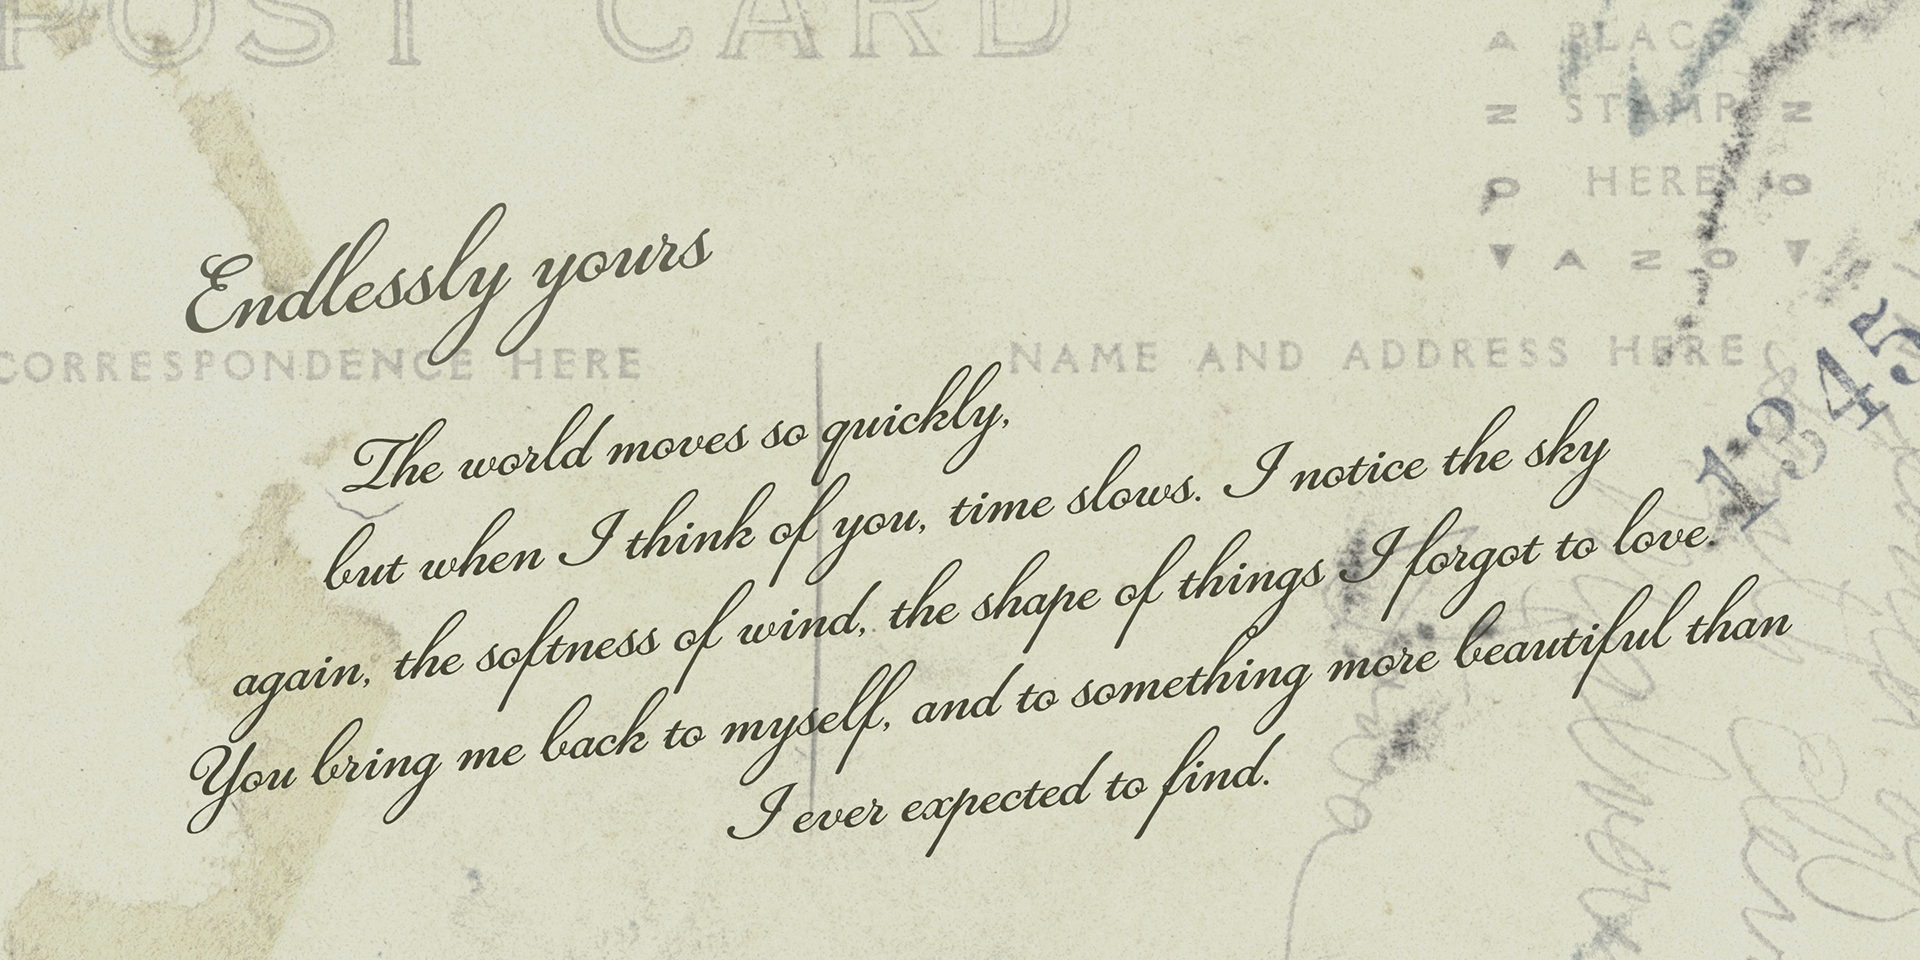 POST CARD
PLACE
STAMP
HERE
AZO
Endlessly yours
CORRESPONDENCE HERE
NAME AND ADDRESS HERE
12345
The world moves so quickly,
but when I think of you, time slows. I notice the sky
again, the softness of wind, the shape of things I forgot to love.
You bring me back to myself, and to something more beautiful than
I ever expected to find.